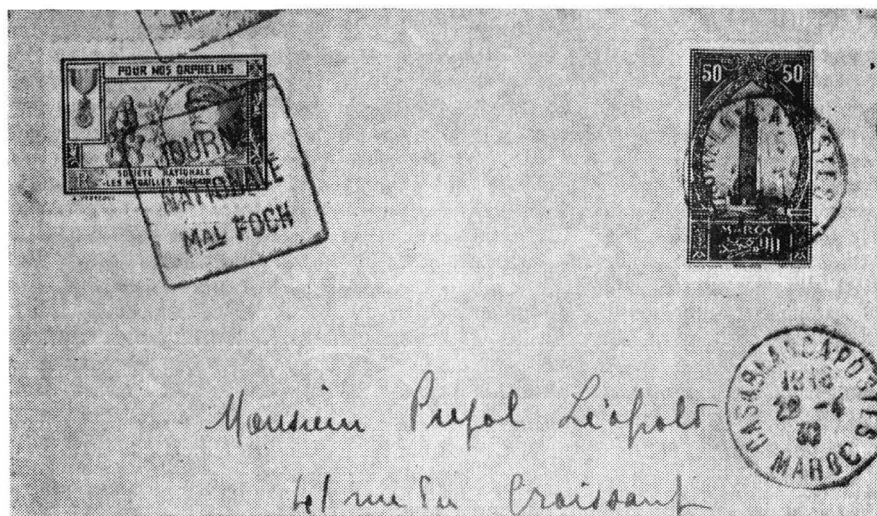 POUR NOS ORPHELINS
SOCIÉTÉ NATIONALE
LES MÉDAILLÉS MILITAIRES
JOURNÉE
NATIONALE
Mal FOCH
50 50
MAROC
CASABLANCA-POSTES
29 -4
MAROC
Monsieur Léopold
41 rue du Croissant